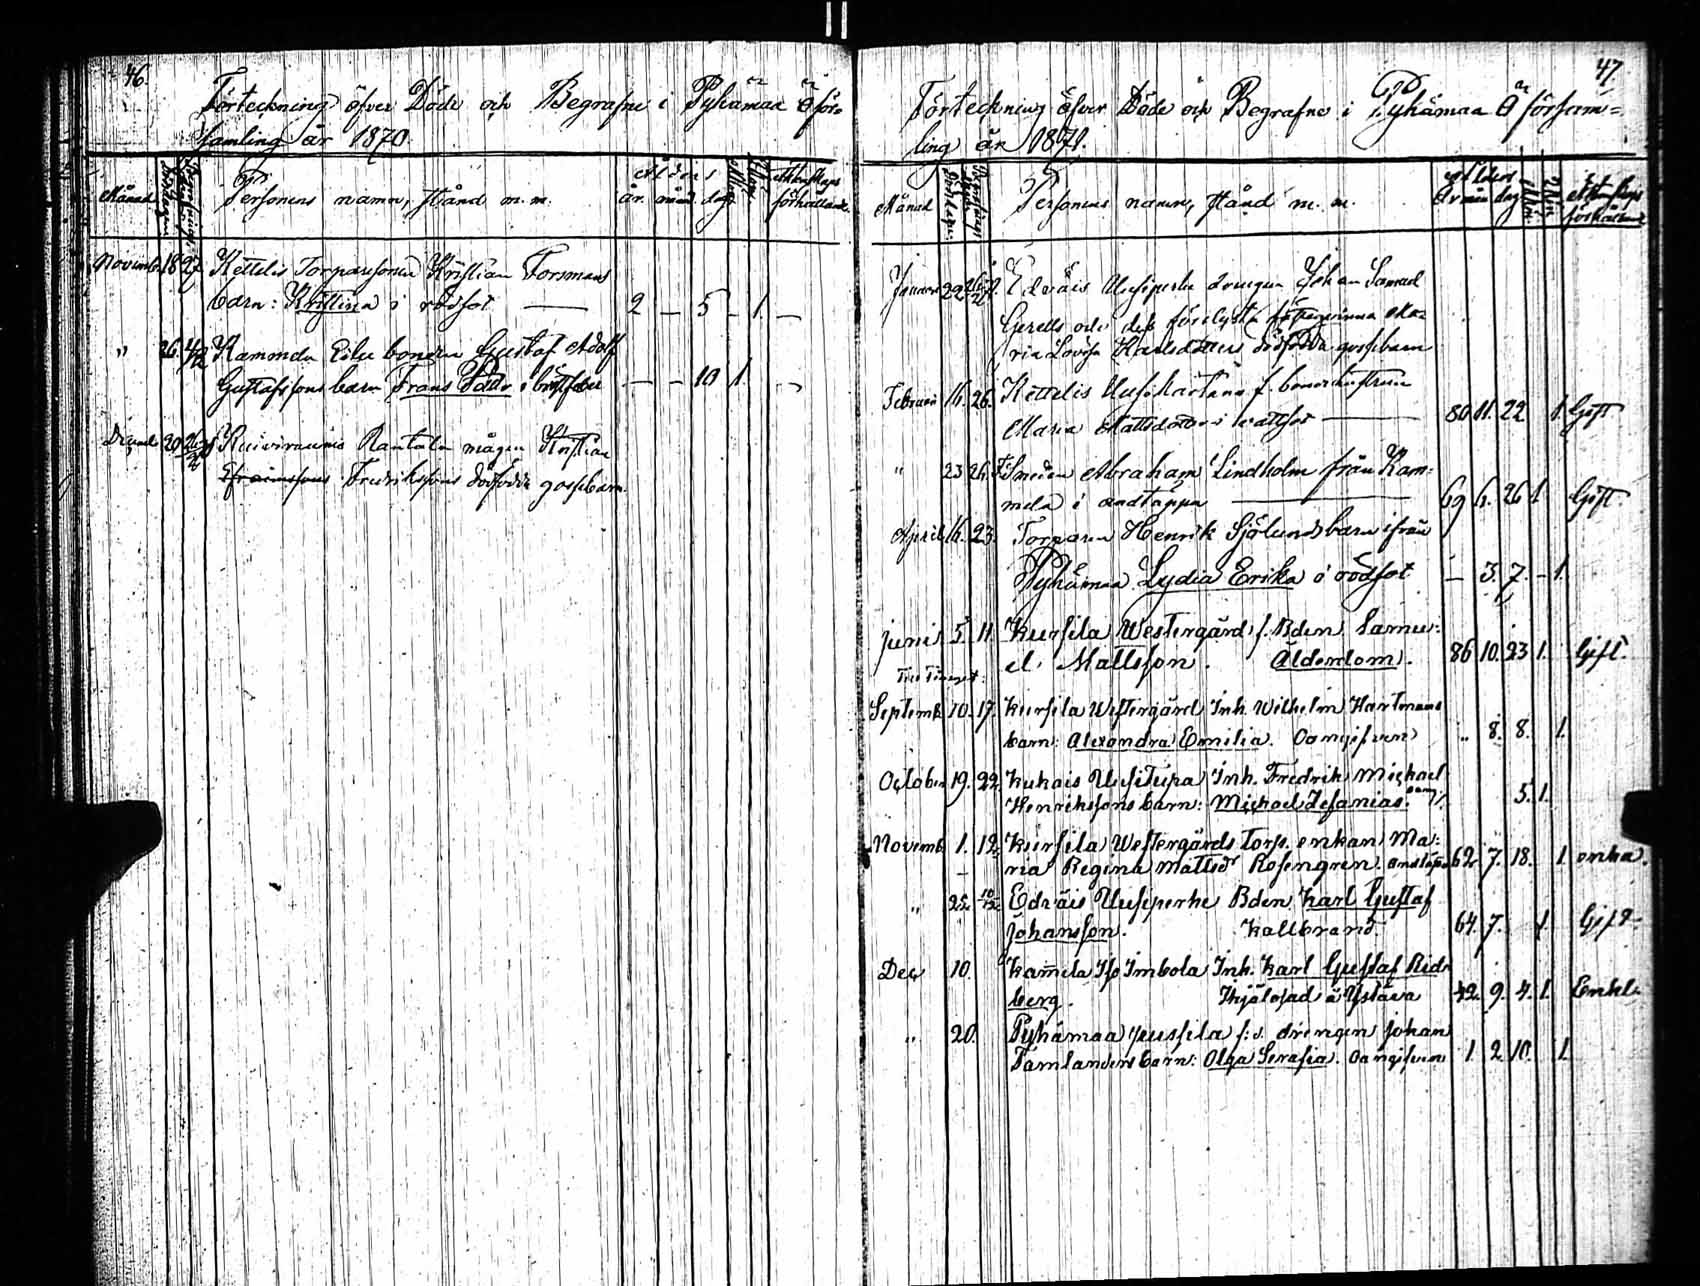 46.
Förteckning öfver Döde och Begrafne i Pyhämaa Ö för-
samling år 1870.
Månad Dödsdagen Begrafnings dagen Personens namn, stånd m. m. Ålder år mån. dag. Mkön Qkön Äktenskaps förhållande
Novemb. 18 27 Kettelis Torparesonen Kristian Forsmans
barn: Kristina i rödsot 2 — 5 — 1. —
" 26 4/12 Kammela Eilu bonden Gustaf Adolf
Gustafssons barn Frans — — 10 1.
20 mågen Kristian
Efraimssons Fredrikssons dödfödde gossebarn.
47.
Förteckning öfver Döde och Begrafne i Pyhämaa Ö försam-
ling år 1871.
Månad Personens namn, stånd m. m. Ålder år mån dag Mkön Qkön
Januari 22 Edväis Uusiperhe drengen Johan Samuel
Gerells och dess
ria Lovisa Karlsdotters dödfödda gossebarn
Februari 16. 26. Kettelis
Maria Mattsdotter i vattsot 80 11. 22 1. Gift
" 23 26. Smeden Abraham Lindholm från Kam-
mela i andtäppa 69 6. 26 1 Gift.
April 16. 23. Torparen Henrik Sjölunds barn ifrån
Pyhämaa Lydia Erika i rödsot — 3. 7. — 1.
juni 5 11 Kursila Westergård f. Bden Samu-
el Mattsson. Ålderdom. 86 10. 23 1. Gift.
Septemb. 10. 17. Kursila Westergård Inh. Wilhelm Hartmans
barn: Alexandra Emilia. Oangifven " 8. 8. 1.
October 19. 22. Kukais Uusitupa Inh. Fredrik Michael
Henrikssons barn: Michael Zefanias. oang. 5. 1.
Novemb. 1. 12. Kursila Westergårds torp. enkan Ma-
ria Regina Mattsdr Rosengren. andtäppa 62 7. 18. 1. enka.
" 25. 10/12 Edväis Uusiperhe Bden Karl Gustaf
Johansson. Kallbrand. 64. 7. 1. Gift.
Dec. 10. Kammela Iso Imbola Inh. Karl Gustaf Rid-
berg. Ihjälosad å Ystäva 42. 9. 4. 1. Enkl.
" 20. Pyhämaa Jussila f: d. drengen Johan
Tamlanders barn: Olga Serafia. Oangifven 1. 2 10. 1.